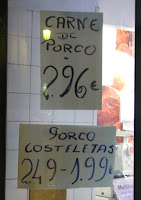 CARNE
DE
PORCO
2,96€
PORCO
COSTELETAS
2,49-1,99€